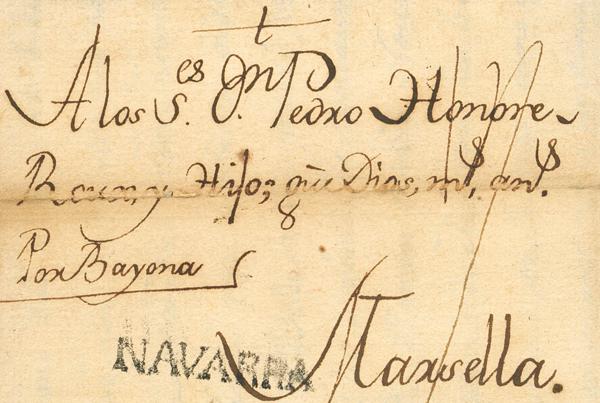 A los S.es Dn Pedro Honore
Roux, y Hijo; que Dios, ms, ans.
Por Bayona
NAVARRA
Marsella.